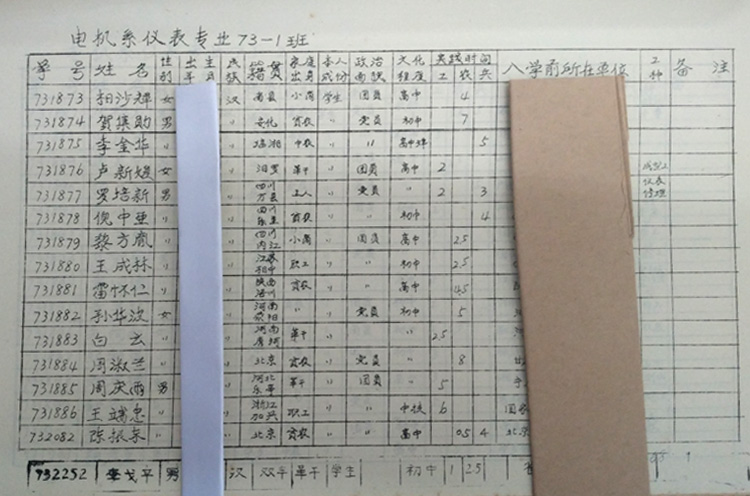 电机系仪表专业73-1班
学号 姓名 性别 出生年月 民族 籍贯 家庭出身 本人成份 政治面貌 文化程度 实践时间 工 农 兵 入学前所在单位 工种 备注
731873 女 汉 小商 学生 团员 高中 4
731874 贺集勋 男 〃 安化 贫农 党员 初中 7
731875 李金华 〃 〃 中农 〃 5
731876 卢新媛 女 〃 汨罗 革干 团员 高中 2
731877 罗培新 男 〃 四川万县 工人 〃 党员 〃 2 3 仪表修理
731878 倪中亚 〃 〃 四川乐至 贫农 〃 初中 4
731879 黎方 〃 〃 四川内江 小商 团员 高中 2.5
731880 王成林 〃 〃 江苏 职工 〃 初中 2.5
731881 雷怀仁 〃 〃 陕西洛川 贫农 〃 高中 4.5
731882 孙华波 〃 〃 河南荥阳 〃 党员 初中 5
731883 白云 〃 河南唐河 革干 〃 〃 2.5
731884 周淑兰 〃 〃 北京 贫农 党员 〃 8
731885 周庆雨 男 〃 河北乐亭 革干 团员 〃 5
731886 王端忠 〃 〃 浙江 职工 〃 中技 6
732082 陈振东 〃 〃 北京 贫农 〃 高中 0.5 4 北京
732252 李戈平 男 汉 双牛 革干 学生 初中 1 2.5